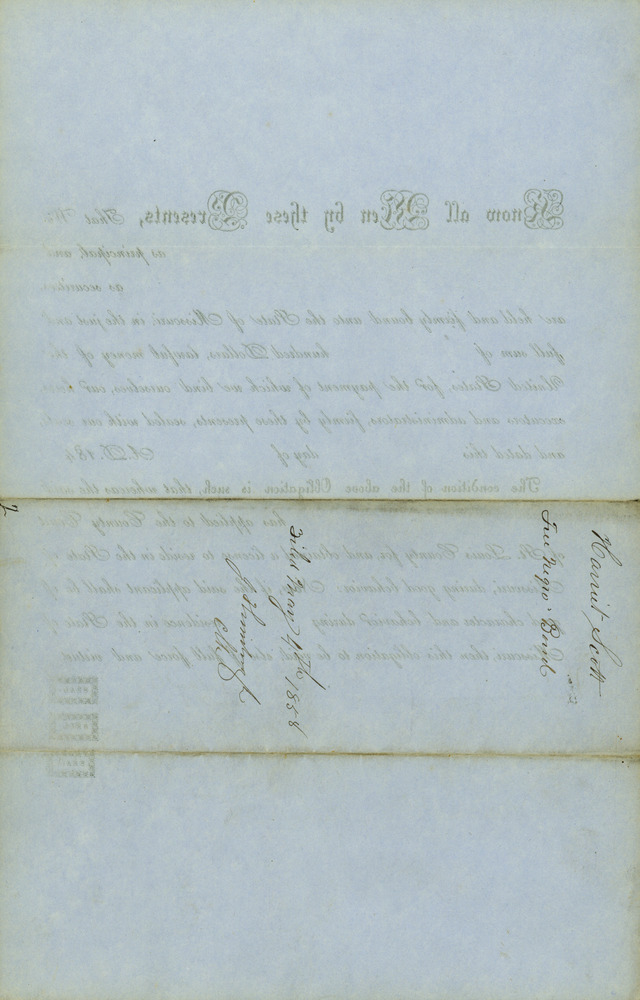 Know all Men by these Presents, That We
as principal, and
as securities
are held and firmly bound unto the State of Missouri, in the just and
full sum of hundred Dollars, lawful money of the
United States, for the payment of which we bind ourselves, our heirs,
executors and administrators, firmly by these presents, sealed with our seals,
and dated this day of A. D. 184
The condition of the above Obligation is such, that whereas the said
has applied to the County Court
of St. Louis County for and obtained a license to reside in the State of
Missouri, during good behavior: Now if the said applicant shall be of
good character and behavior during residence in the State of
Missouri, then this obligation to be void, else of full force and virtue.
Harriet Scott
Free Negro Bond
Filed May 4th 1858
Clk
2